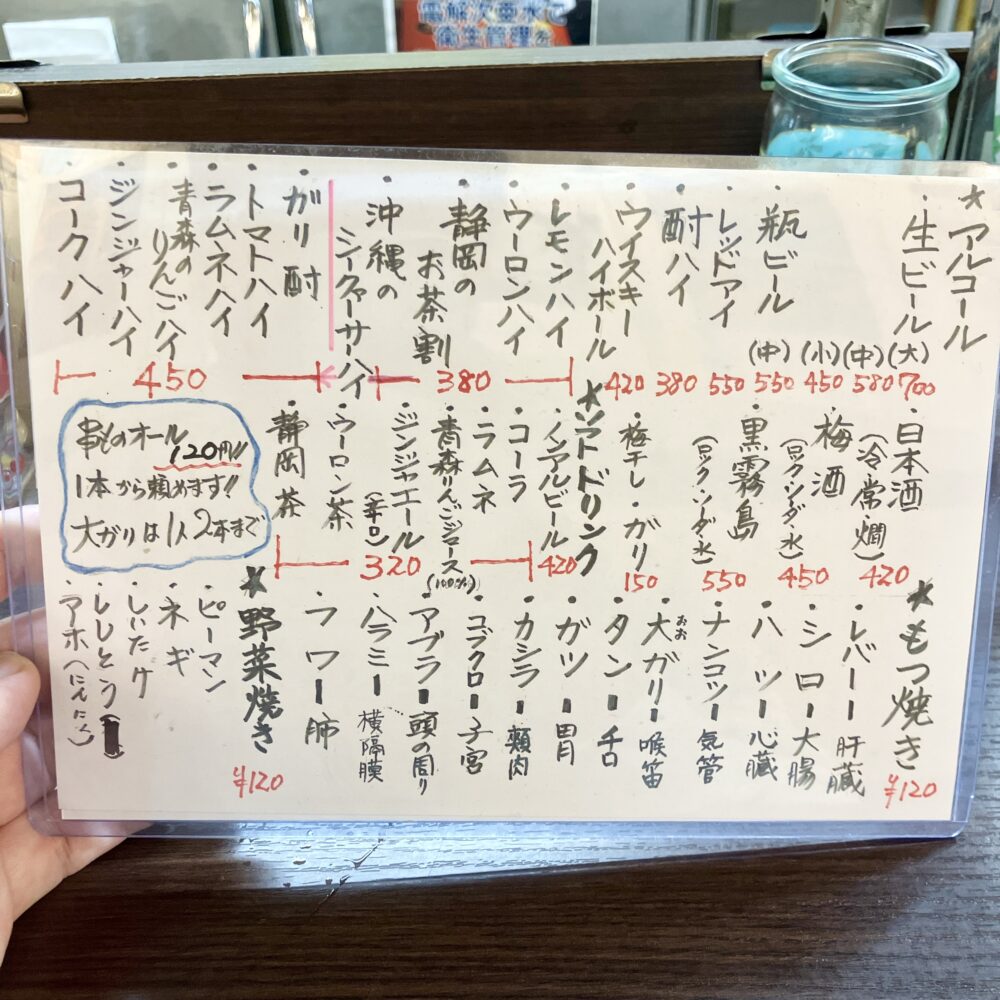 電解次亜水で
衛生管理を
★アルコール
・生ビール
(大) 700
(中) 580
(小) 450
・瓶ビール (中) 550
・レッドアイ 550
・酎ハイ 380
・ウイスキーハイボール 420
・レモンハイ
・ウーロンハイ
・静岡のお茶割
380
・沖縄のシークァーサーハイ
・ガリ酎
・トマトハイ
・ラムネハイ
・青森のりんごハイ
・ジンジャーハイ
・コークハイ
450
・日本酒
(冷常燗) 420
・梅酒
(ロック・ソーダ・水) 450
・黒霧島
(ロック・ソーダ・水) 550
・梅干し・ガリ 150
★ソフトドリンク
・ノンアルビール 420
・コーラ
・ラムネ
・青森りんごジュース (100%)
・ジンジャエール (辛口)
・ウーロン茶
・静岡茶
320
串ものオール
120円!!
1本から頼めます!!
大ガリは1人2本まで
★もつ焼き
¥120
・レバー ー 肝臓
・シロ ー 大腸
・ハツ ー 心臓
・ナンコツ ー 気管
・大ガリ ー 喉笛
おお
・タン ー 舌
・ガツ ー 胃
・カシラ ー 頬肉
・コブクロ ー 子宮
・アブラ ー 頭の周り
・ハラミ ー 横隔膜
・フワ ー 肺
★野菜焼き
¥120
・ピーマン
・ネギ
・しいたけ
・ししとう
・アホ(にんにく)